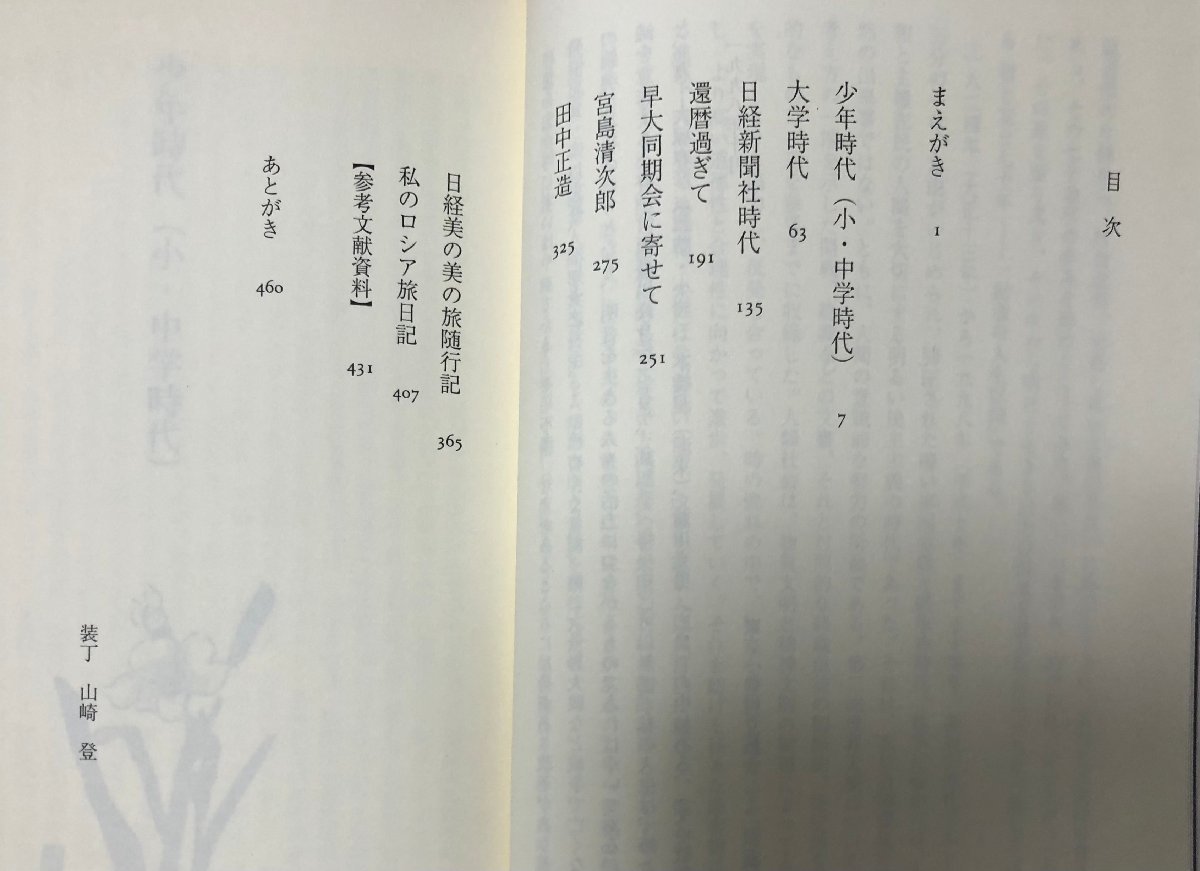 目次
まえがき 1
少年時代（小・中学時代） 7
大学時代 63
日経新聞社時代 135
還暦過ぎて 191
早大同期会に寄せて 251
宮島清次郎 275
田中正造 325
日経美の美の旅随行記 365
私のロシア旅日記 407
【参考文献資料】 431
あとがき 460
装丁 山崎 登